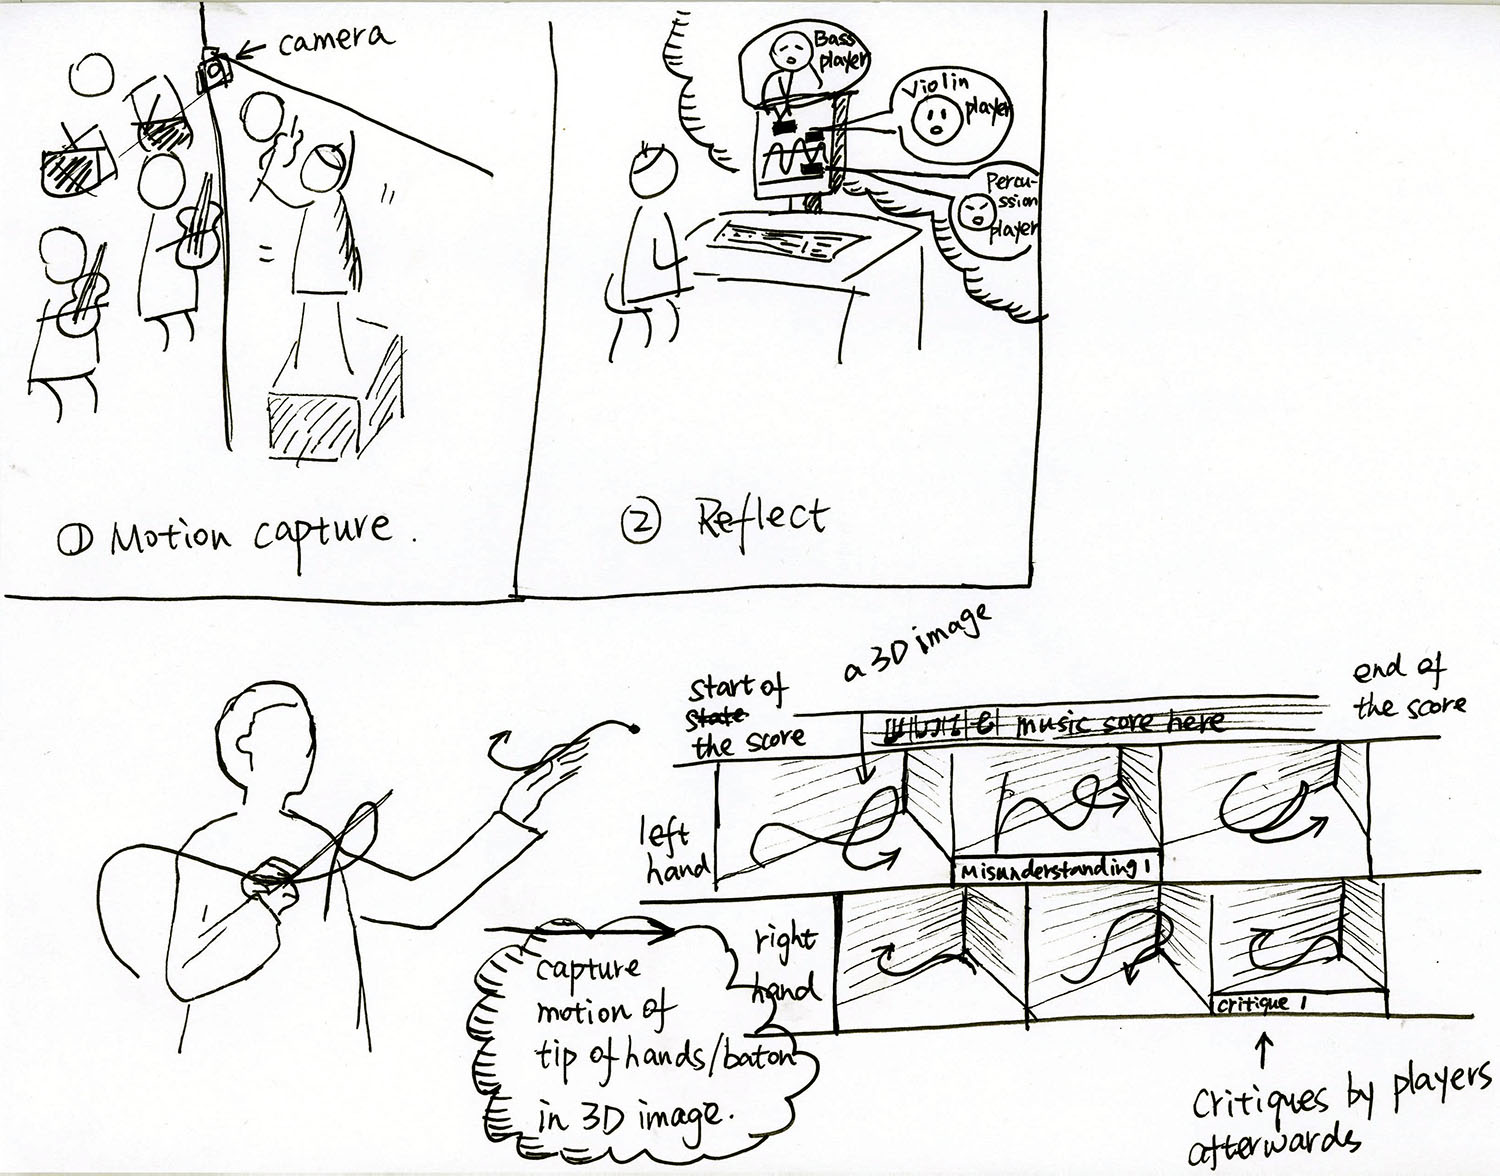 camera
① Motion capture.
Bass
player
Violin
player
Percu-
ssion
player
② Reflect
capture
motion of
tip of hands/baton
in 3D image.
a 3D image
start of
state
the score
music sore here
end of
the score
left
hand
Misunderstanding 1
right
hand
critique 1
Critiques by players
afterwards